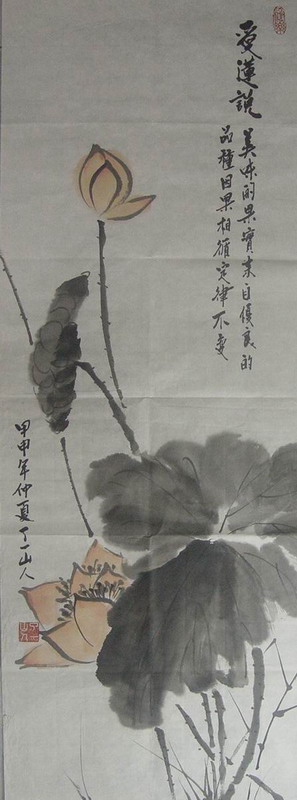 愛蓮說
美味的果實来自優良的
品種因果相循定律不變
甲申年仲夏丁一山人